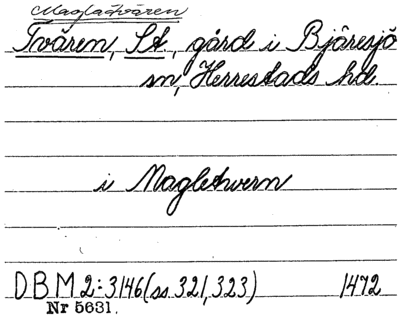 Maglatvären
Tvären, St., gård i Bjäresjö
sn, Herrestads hd.
i Magletwern
DBM 2:3146 (ss 321, 323) 1472
Nr 5631.